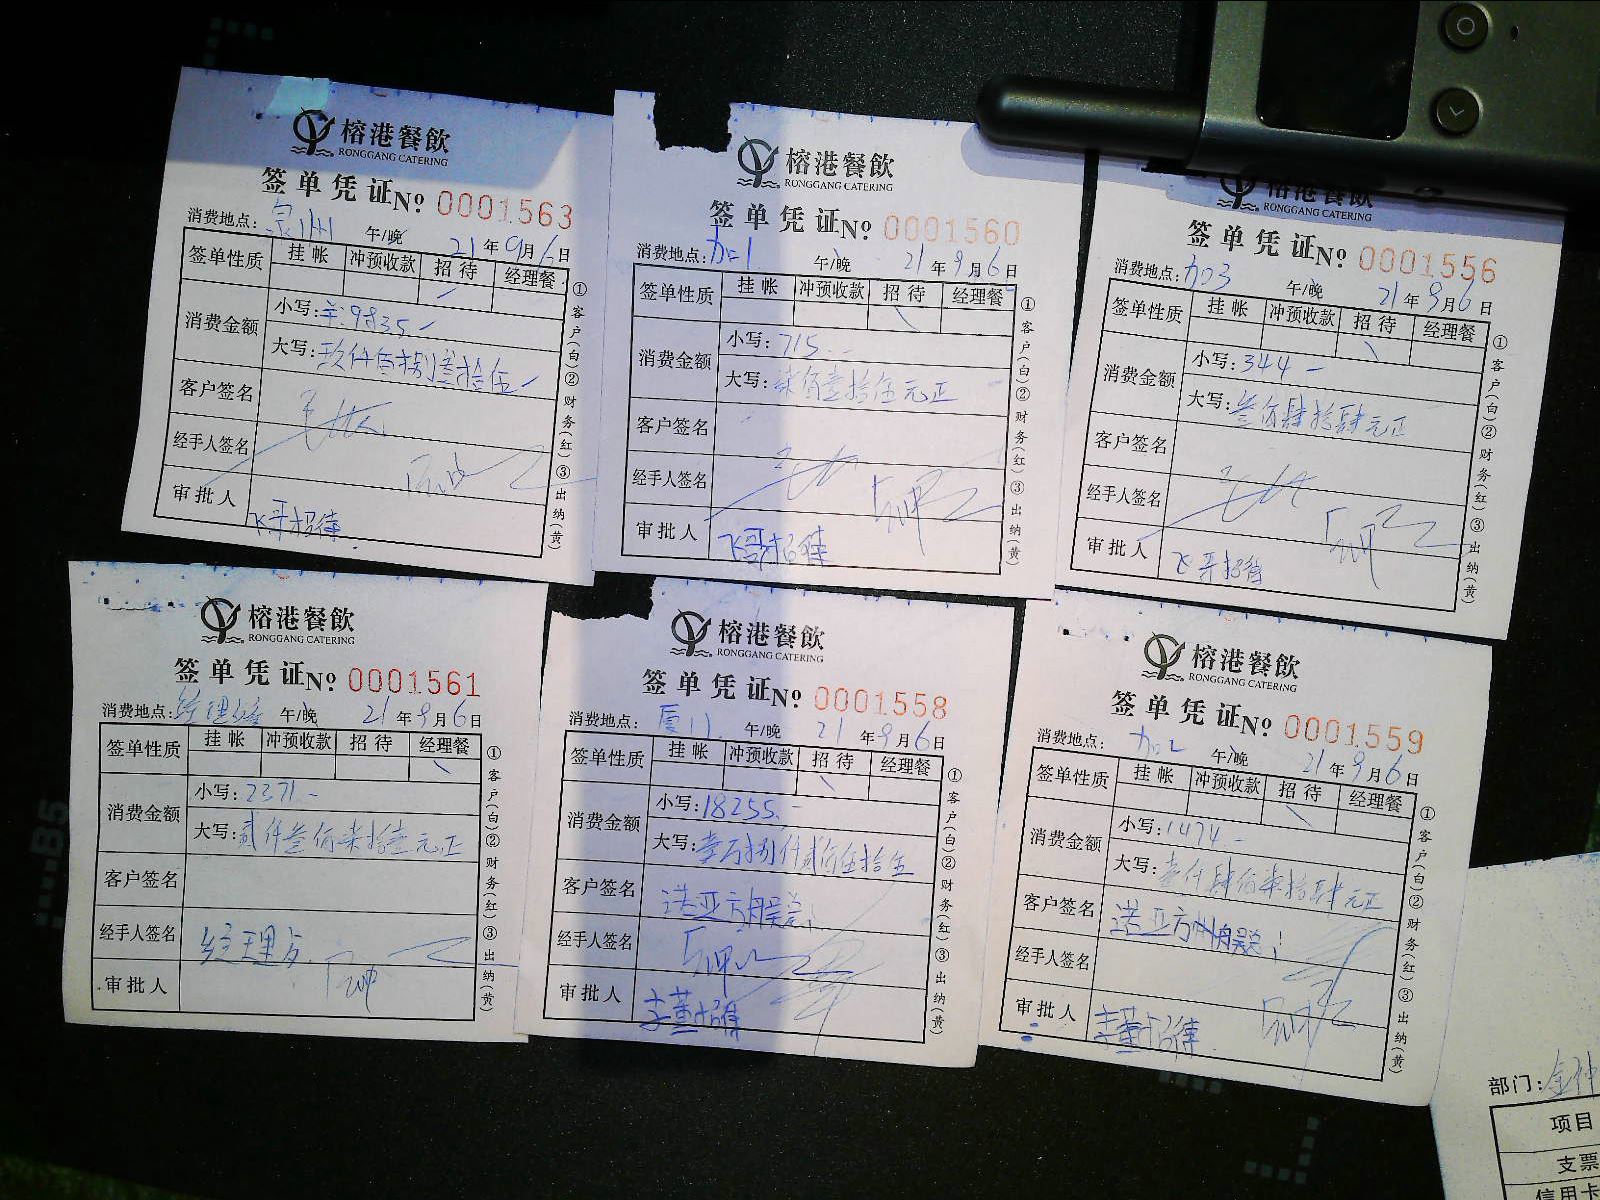 榕港餐飲
RONGGANG CATERING
签单凭证 No 0001563
消费地点：泉州 午/晚 21年9月6日
签单性质 挂帐 冲预收款 招待 经理餐
消费金额 小写：￥:9835
大写：玖仟捌佰叁拾伍
客户签名
经手人签名
审批人 飞哥招待
①客户(白)②财务(红)③出纳(黄)
榕港餐飲
RONGGANG CATERING
签单凭证 No 0001560
消费地点：加1 午/晚 21年9月6日
签单性质 挂帐 冲预收款 招待 经理餐
消费金额 小写：715
大写：柒佰壹拾伍元正
客户签名
经手人签名
审批人 飞哥招待
①客户(白)②财务(红)③出纳(黄)
榕港餐飲
RONGGANG CATERING
签单凭证 No 0001556
消费地点：加3 午/晚 21年9月6日
签单性质 挂帐 冲预收款 招待 经理餐
消费金额 小写：344
大写：叁佰肆拾肆元正
客户签名
经手人签名
审批人 飞哥招待
①客户(白)②财务(红)③出纳(黄)
榕港餐飲
RONGGANG CATERING
签单凭证 No 0001561
消费地点：经理 午/晚 21年9月6日
签单性质 挂帐 冲预收款 招待 经理餐
消费金额 小写：2371
大写：贰仟叁佰柒拾壹元正
客户签名
经手人签名 经理
审批人
①客户(白)②财务(红)③出纳(黄)
榕港餐飲
RONGGANG CATERING
签单凭证 No 0001558
消费地点：厦门 午/晚 21年9月6日
签单性质 挂帐 冲预收款 招待 经理餐
消费金额 小写：18255
大写：壹万捌仟贰佰伍拾伍
客户签名 诺亚方舟吴总
经手人签名
审批人 李董招待
①客户(白)②财务(红)③出纳(黄)
榕港餐飲
RONGGANG CATERING
签单凭证 No 0001559
消费地点：加2 午/晚 21年9月6日
签单性质 挂帐 冲预收款 招待 经理餐
消费金额 小写：1474
大写：壹仟肆佰柒拾肆元正
客户签名 诺亚方舟吴总
经手人签名
审批人 李董招待
①客户(白)②财务(红)③出纳(黄)
部门：
项目
支票
信用卡
B5